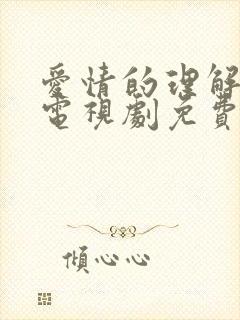 愛情的理解
電視劇免費
傾心心